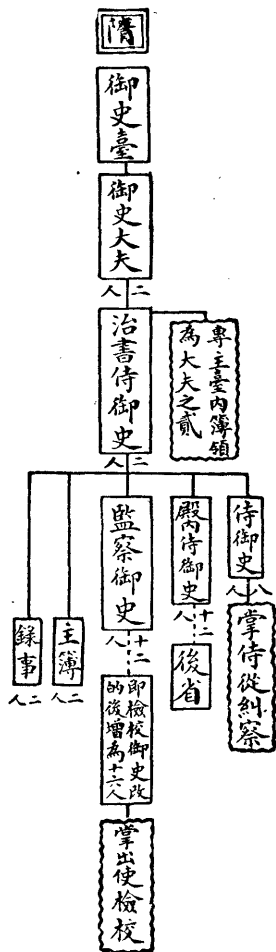 隋
御史臺
御史大夫
二人
治書侍御史
二人
專主臺內簿領
為大夫之貳
侍御史
八人
掌侍從糾察
殿內侍御史
十二人
後省
監察御史
十二人
即檢校御史改
的後增為十六人
掌出使檢校
主簿
二人
錄事
二人